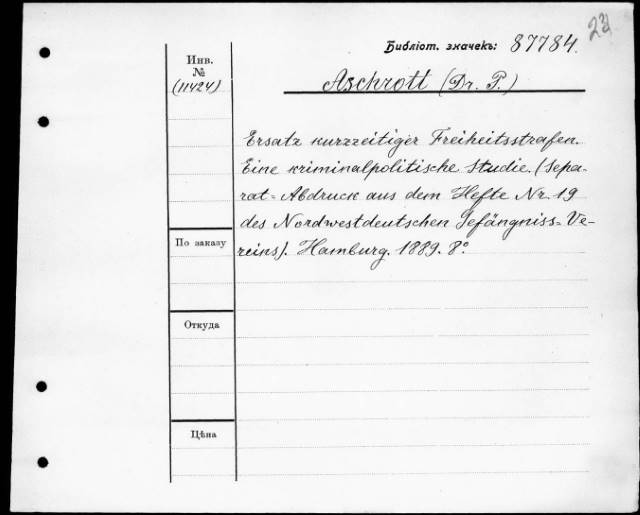 23
Библiот. значекъ: 87784.
Инв.
№
(11424)
Aschrott (Dr. P.)
Ersatz kurzzeitiger Freiheitsstrafen.
Eine kriminalpolitische Studie. (Sepa-
rat=Abdruck aus dem Hefte Nr. 19
des Nordwestdeutschen Gefängniss=Ve-
reins). Hamburg. 1889. 8°.
По заказу
Откуда
Цѣна